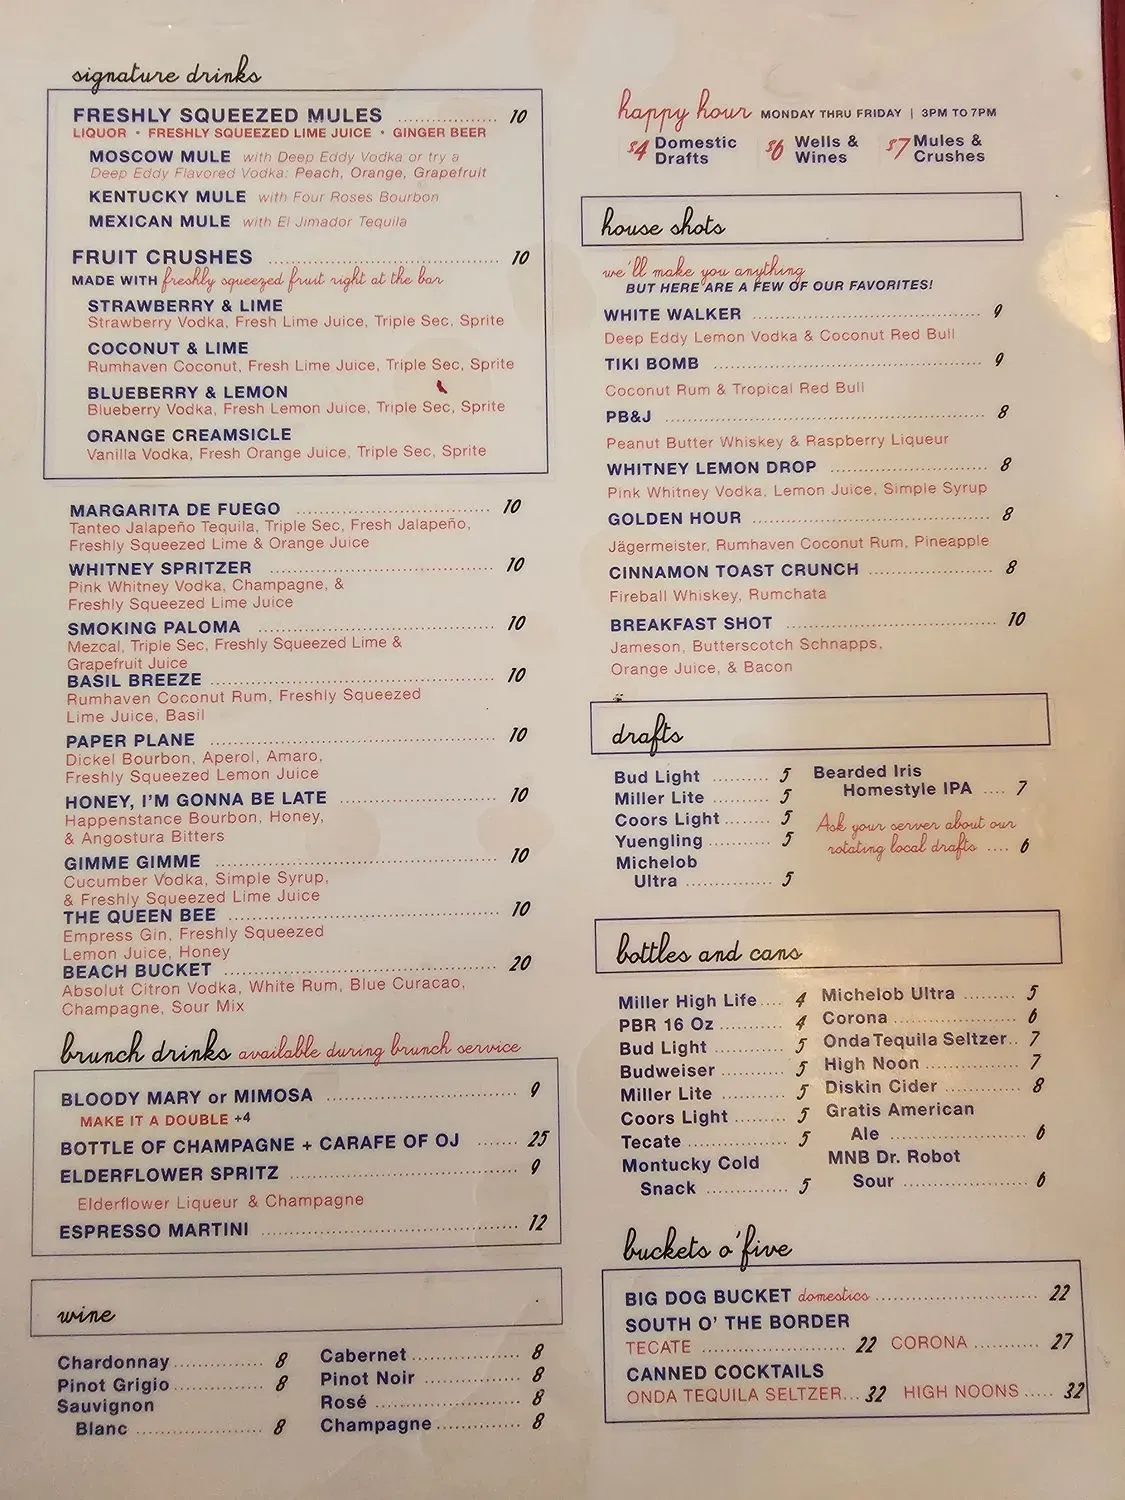 signature drinks
FRESHLY SQUEEZED MULES .................. 10
LIQUOR • FRESHLY SQUEEZED LIME JUICE • GINGER BEER
MOSCOW MULE with Deep Eddy Vodka or try a
Deep Eddy Flavored Vodka: Peach, Orange, Grapefruit
KENTUCKY MULE with Four Roses Bourbon
MEXICAN MULE with El Jimador Tequila
FRUIT CRUSHES .................. 10
MADE WITH freshly squeezed fruit right at the bar
STRAWBERRY & LIME
Strawberry Vodka, Fresh Lime Juice, Triple Sec, Sprite
COCONUT & LIME
Rumhaven Coconut, Fresh Lime Juice, Triple Sec, Sprite
BLUEBERRY & LEMON
Blueberry Vodka, Fresh Lemon Juice, Triple Sec, Sprite
ORANGE CREAMSICLE
Vanilla Vodka, Fresh Orange Juice, Triple Sec, Sprite
MARGARITA DE FUEGO .................. 10
Tanteo Jalapeño Tequila, Triple Sec, Fresh Jalapeño,
Freshly Squeezed Lime & Orange Juice
WHITNEY SPRITZER .................. 10
Pink Whitney Vodka, Champagne, &
Freshly Squeezed Lime Juice
SMOKING PALOMA .................. 10
Mezcal, Triple Sec, Freshly Squeezed Lime &
Grapefruit Juice
BASIL BREEZE .................. 10
Rumhaven Coconut Rum, Freshly Squeezed
Lime Juice, Basil
PAPER PLANE .................. 10
Dickel Bourbon, Aperol, Amaro,
Freshly Squeezed Lemon Juice
HONEY, I'M GONNA BE LATE .................. 10
Happenstance Bourbon, Honey,
& Angostura Bitters
GIMME GIMME .................. 10
Cucumber Vodka, Simple Syrup,
& Freshly Squeezed Lime Juice
THE QUEEN BEE .................. 10
Empress Gin, Freshly Squeezed
Lemon Juice, Honey
BEACH BUCKET .................. 20
Absolut Citron Vodka, White Rum, Blue Curacao,
Champagne, Sour Mix
brunch drinks available during brunch service
BLOODY MARY or MIMOSA .................. 9
MAKE IT A DOUBLE +4
BOTTLE OF CHAMPAGNE + CARAFE OF OJ ....... 25
ELDERFLOWER SPRITZ .................. 9
Elderflower Liqueur & Champagne
ESPRESSO MARTINI .................. 12
wine
Chardonnay .................. 8
Pinot Grigio .................. 8
Sauvignon
Blanc .................. 8
Cabernet .................. 8
Pinot Noir .................. 8
Rosé .................. 8
Champagne .................. 8
happy hour MONDAY THRU FRIDAY | 3PM TO 7PM
$4 Domestic Drafts
$6 Wells & Wines
$7 Mules & Crushes
house shots
we'll make you anything
BUT HERE ARE A FEW OF OUR FAVORITES!
WHITE WALKER .................. 9
Deep Eddy Lemon Vodka & Coconut Red Bull
TIKI BOMB .................. 9
Coconut Rum & Tropical Red Bull
PB&J .................. 8
Peanut Butter Whiskey & Raspberry Liqueur
WHITNEY LEMON DROP .................. 8
Pink Whitney Vodka, Lemon Juice, Simple Syrup
GOLDEN HOUR .................. 8
Jägermeister, Rumhaven Coconut Rum, Pineapple
CINNAMON TOAST CRUNCH .................. 8
Fireball Whiskey, Rumchata
BREAKFAST SHOT .................. 10
Jameson, Butterscotch Schnapps,
Orange Juice, & Bacon
drafts
Bud Light .......... 5
Miller Lite .......... 5
Coors Light ........ 5
Yuengling .......... 5
Michelob
Ultra .................. 5
Bearded Iris
Homestyle IPA .... 7
Ask your server about our
rotating local drafts .... 6
bottles and cans
Miller High Life .... 4
PBR 16 Oz .......... 4
Bud Light .......... 5
Budweiser .......... 5
Miller Lite .......... 5
Coors Light ........ 5
Tecate .................. 5
Montucky Cold
Snack .................. 5
Michelob Ultra ......... 5
Corona .................. 6
Onda Tequila Seltzer.. 7
High Noon .............. 7
Diskin Cider ............ 8
Gratis American
Ale .................. 6
MNB Dr. Robot
Sour .................. 6
buckets o'five
BIG DOG BUCKET domestics .................. 22
SOUTH O' THE BORDER
TECATE .................. 22 CORONA ............ 27
CANNED COCKTAILS
ONDA TEQUILA SELTZER... 32 HIGH NOONS ..... 32